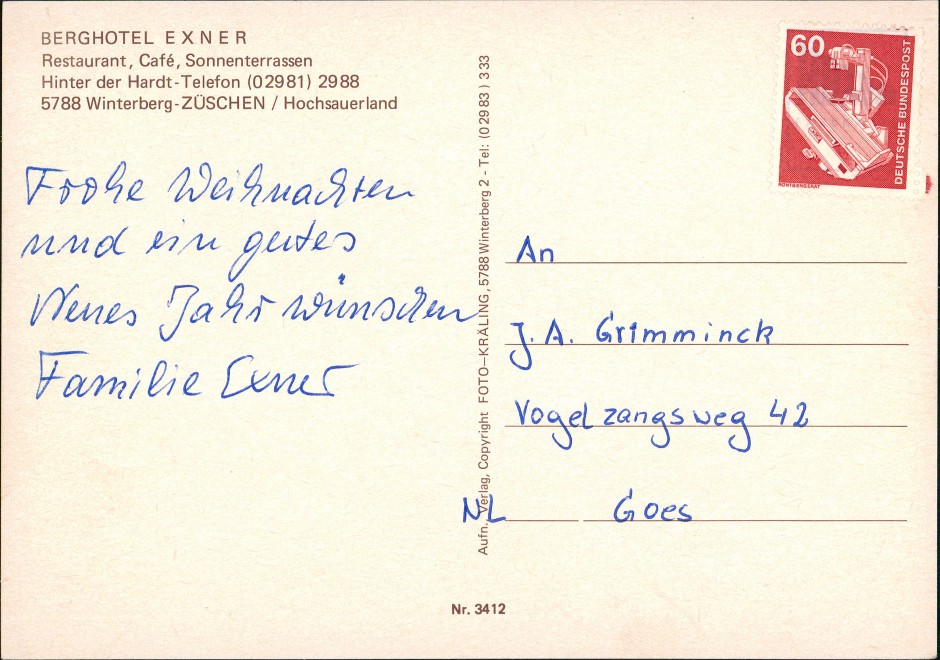 BERGHOTEL EXNER
Restaurant, Café, Sonnenterrassen
Hinter der Hardt-Telefon (02981) 2988
5788 Winterberg-ZÜSCHEN / Hochsauerland
Frohe Weihnachten
und ein gutes
Neues Jahr wünschen
Familie Exner
Aufn. Verlag, Copyright FOTO-KRÄLING, 5788 Winterberg 2 - Tel: (02983) 333
60
DEUTSCHE BUNDESPOST
RÖNTGENGERÄT
An
J. A. Grimminck
Vogelzangsweg 42
NL Goes
Nr. 3412